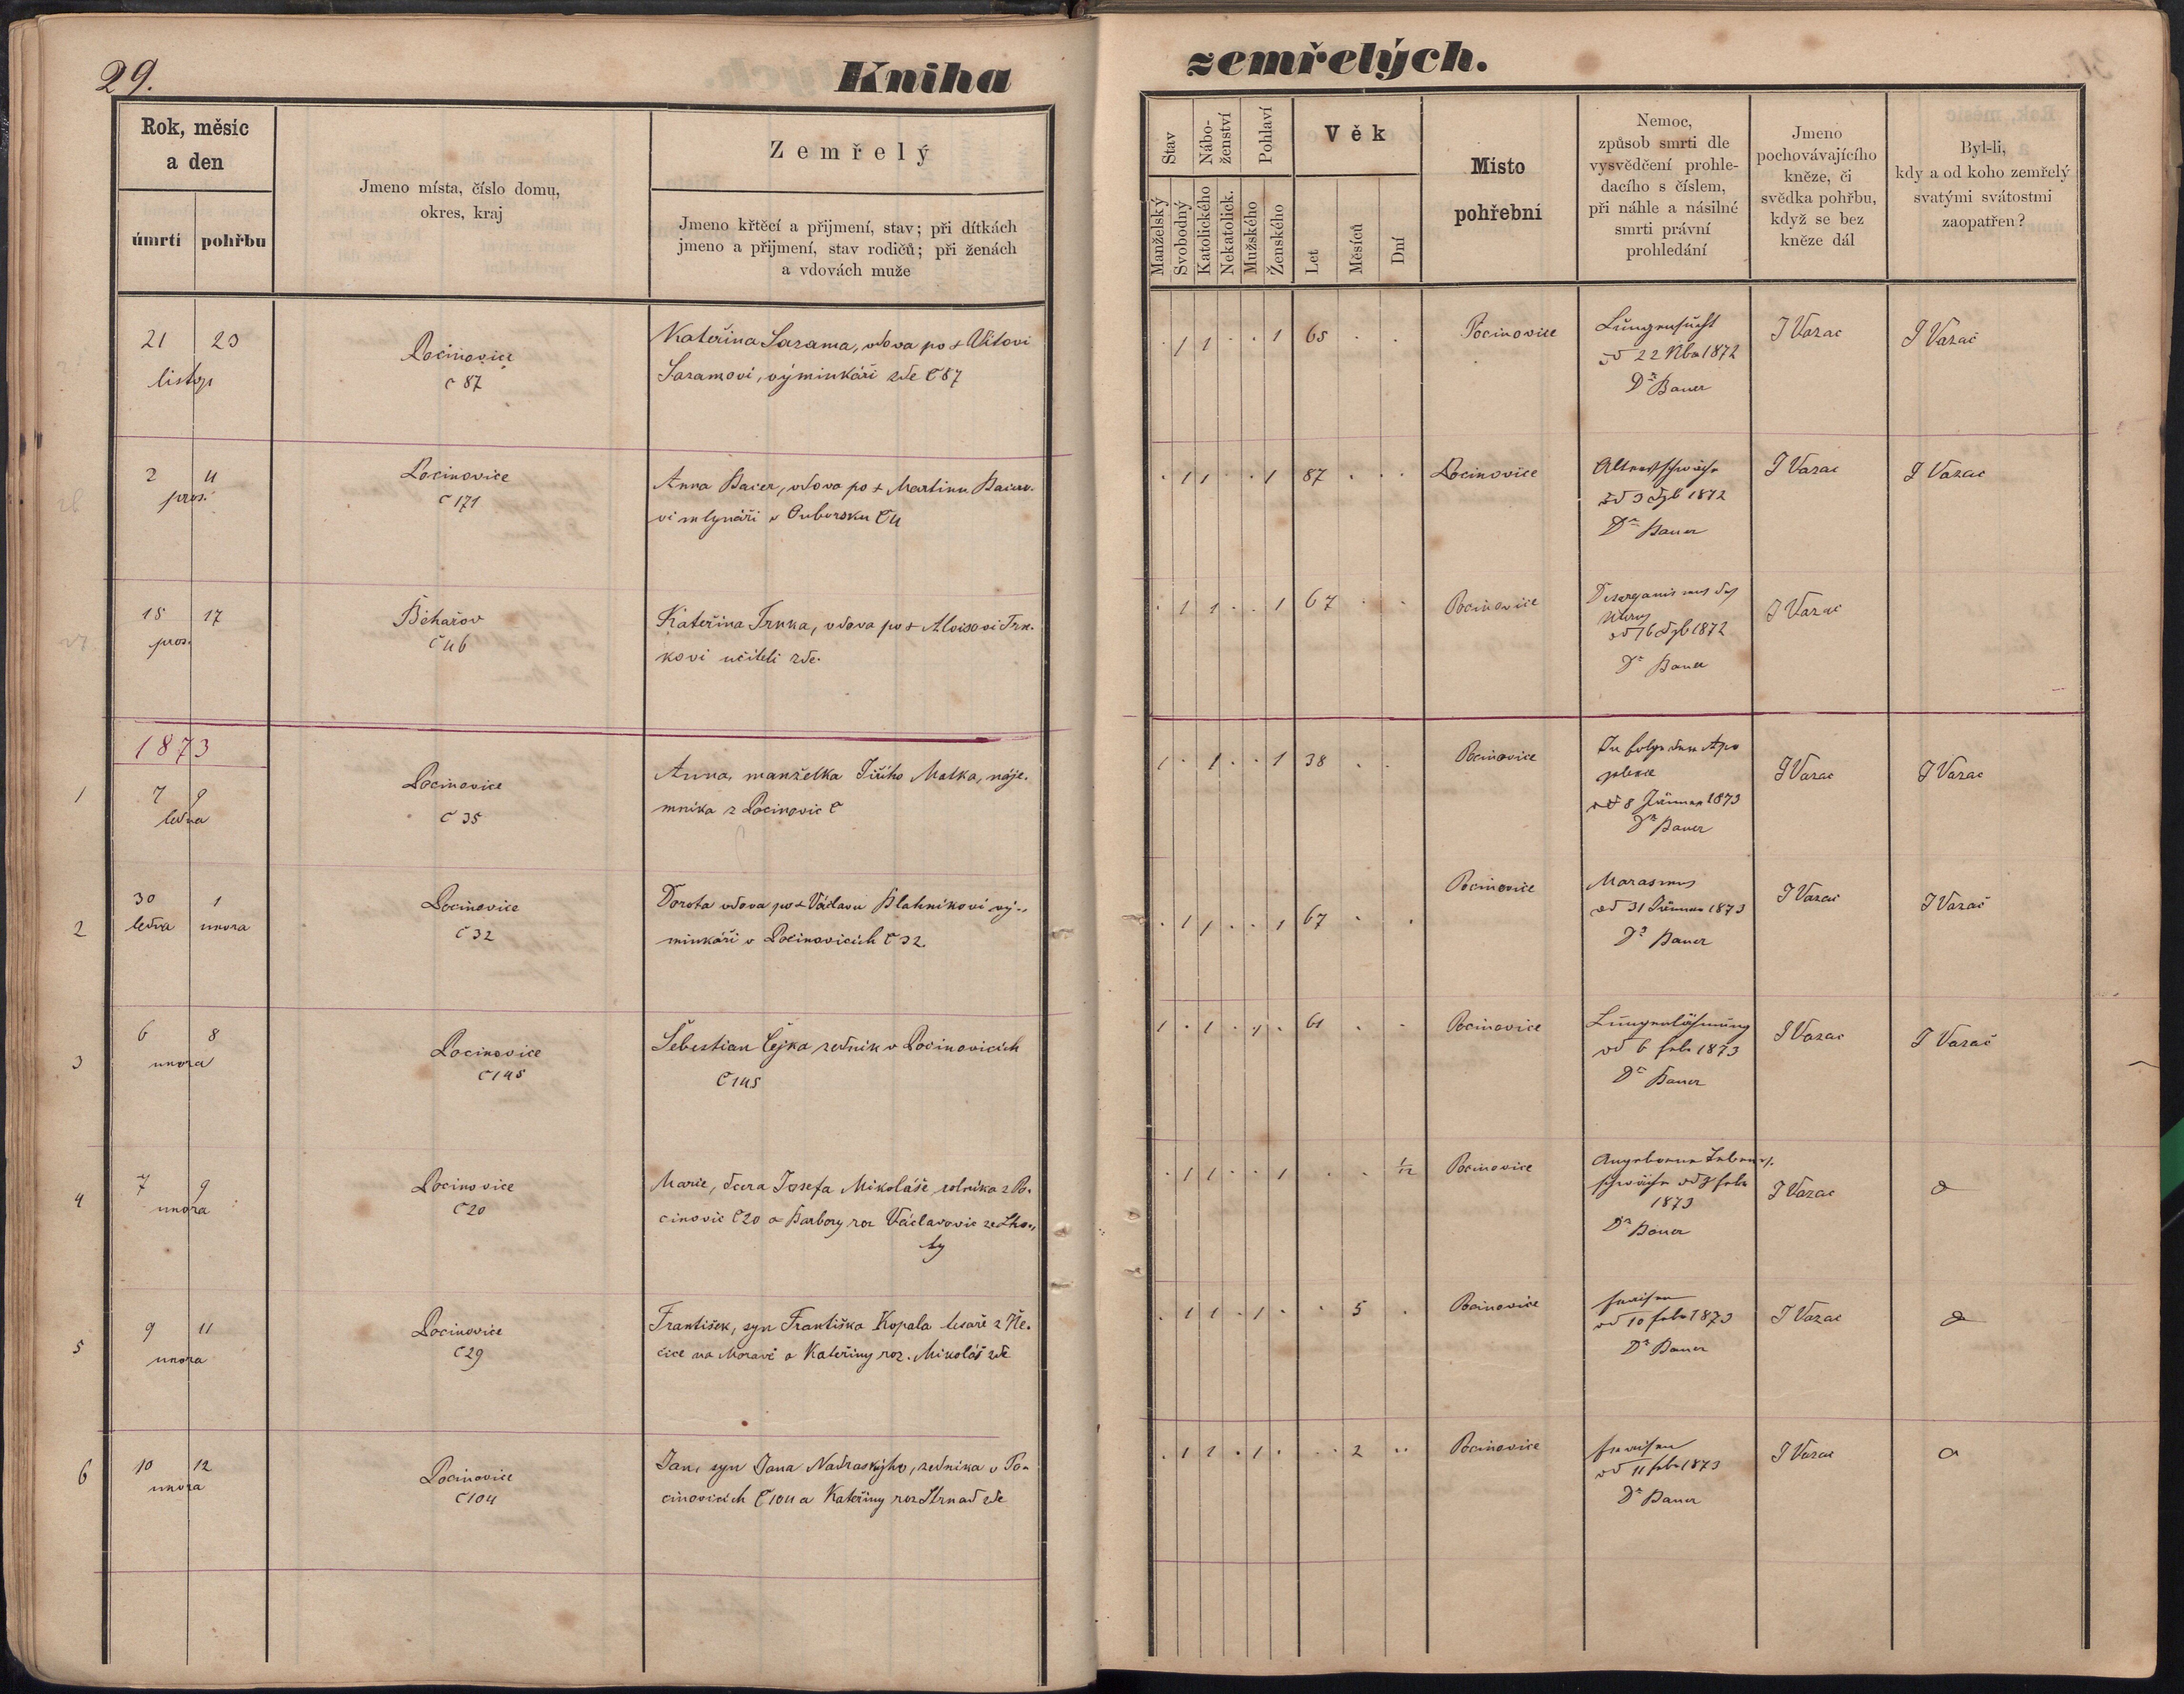 29.
Kniha
zemřelých.
Rok, měsíc
a den
úmrtí
pohřbu
Jmeno místa, číslo domu,
okres, kraj
Zemřelý
Jmeno křtěcí a přijmení, stav; při dítkách
jmeno a přijmení, stav rodičů; při ženách
a vdovách muže
Stav
Manželský
Svobodný
Nábo-
ženství
Katolického
Nekatolick.
Pohlaví
Mužského
Ženského
Věk
Let
Měsíců
Dní
Místo
pohřební
Nemoc,
způsob smrti dle
vysvědčení prohle-
dacího s číslem,
při náhle a násilné
smrti právní
prohledání
Jmeno
pochovávajícího
kněze, či
svědka pohřbu,
když se bez
kněze dál
Byl-li,
kdy a od koho zemřelý
svatými svátostmi
zaopatřen?
21 23
listop
Pocinovice
č 87
Kateřina Sazama, vdova po + Vítovi
Sazamovi, výminkáři zde č 87
. 1 1 . . 1 65 . .
Pocinovice
Lungensucht
22 Nbr 1872
Dr Bauer
J Vazac
J Vazač
2 4
pros.
Pocinovice
č 171
Anna Bacer, vdova po + Martinu Bacero-
vi mlynáři v Ouborsku č 4
. 1 1 . . 1 87 . .
Pocinovice
Altersschwäche
od 3 1872
Dr Bauer
J Vazac
J Vazac
15 17
pros.
Běhařov
č 46
Kateřina Trnka, vdova po + Aloisovi Trn-
kovi učiteli zde.
. 1 1 . . 1 67 . .
Pocinovice
Desorganismus des
Uterus
od 16 1872
Dr Bauer
J Vazac
1873
1
7 9
ledna
Pocinovice
č 35
Anna, manželka Jiřího Matka, náje-
mníka z Pocinovic č
1 . 1 . . 1 38 . .
Pocinovice
In folge der Apo
plexie
od 8 Jänner 1873
Dr Bauer
J Vazac
J Vazac
2
30 1
ledna unora
Pocinovice
č 32
Dorota vdova po + Václavu Blahníkovi vý-
minkáři v Pocinovicích č 32.
. 1 1 . . 1 67 . .
Pocinovice
Marasmus
od 31 Jänner 1873
Dr Bauer
J Vazac
J Vazač
3
6 8
unora
Pocinovice
č 145
Šebestian Cejka zedník v Pocinovicích
č 145
1 . 1 . 1 . 61 . .
Pocinovice
Lungenlähmung
od 6 feb 1873
Dr Bauer
J Vazac
J Vazač
4
7 9
unora
Pocinovice
č 20
Marie, dcera Josefa Mikoláše rolníka z Po-
cinovic č 20 a Barbory roz Václavovic ze Lho-
ty
. 1 1 . . 1 . . 1/12
Pocinovice
Angeborene Lebens-
schwäche od 8 feb
1873
Dr Bauer
J Vazac
5
9 11
unora
Pocinovice
č 29
František, syn Františka Kopala tesaře z Ře-
čice na Moravě a Kateřiny roz. Mikoláš zde
. 1 1 . 1 . . 5 .
Pocinovice
fraisen
od 10 feb 1873
Dr Bauer
J Vazac
6
10 12
unora
Pocinovice
č 104
Jan, syn Jana Nadraského, zedníka v Po-
cinovicích č 104 a Kateřiny roz Strnad zde
. 1 1 . 1 . . 2 .
Pocinovice
fraisen
od 11 feb 1873
Dr Bauer
J Vazac